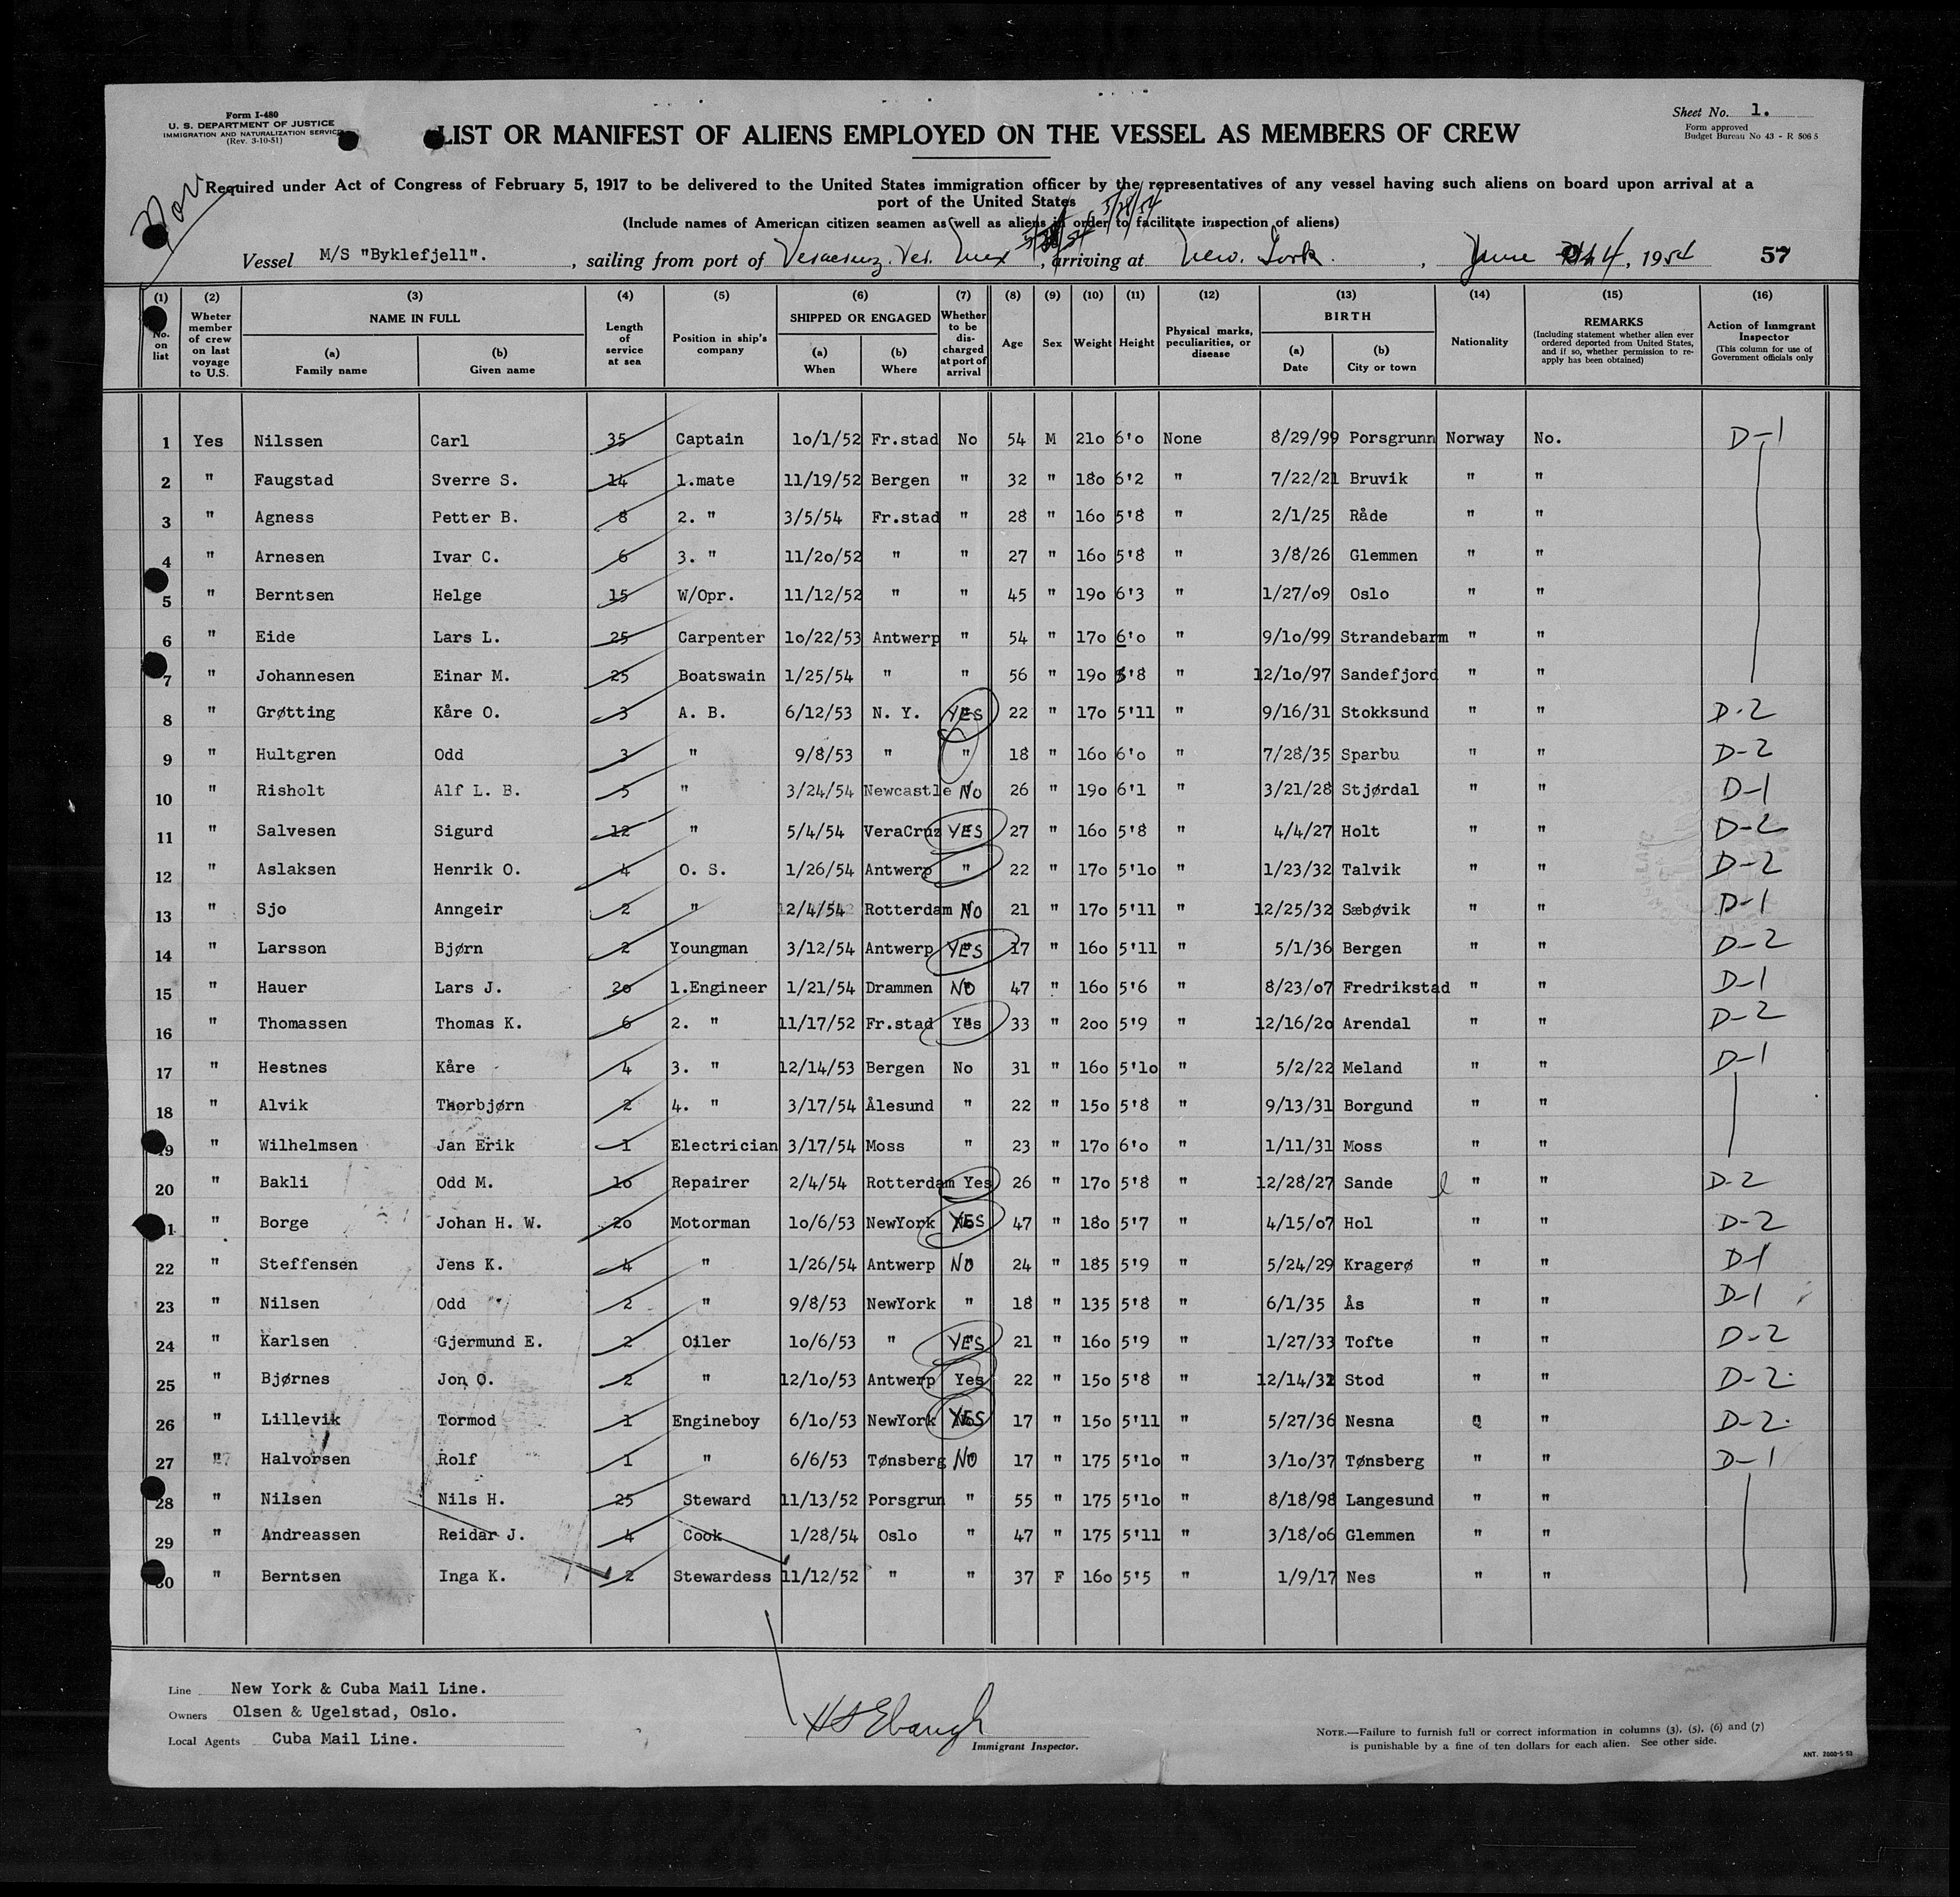 Form I-480
U. S. DEPARTMENT OF JUSTICE
IMMIGRATION AND NATURALIZATION SERVICE
(Rev. 3-10-51)
Sheet No. 1.
Form approved
Budget Bureau No 43 - R 506 5
LIST OR MANIFEST OF ALIENS EMPLOYED ON THE VESSEL AS MEMBERS OF CREW
Nor
Required under Act of Congress of February 5, 1917 to be delivered to the United States immigration officer by the representatives of any vessel having such aliens on board upon arrival at a
port of the United States
(Include names of American citizen seamen as well as aliens in order to facilitate inspection of aliens)
5/28/54
Vessel M/S "Byklefjell". , sailing from port of Veracruz. Ver. Mex , arriving at New. York. , June 4, 1954 57
(1) (2) (3) (4) (5) (6) (7) (8) (9) (10) (11) (12) (13) (14) (15) (16)
No. on list
Wheter member of crew on last voyage to U.S.
NAME IN FULL
(a) Family name
(b) Given name
Length of service at sea
Position in ship's company
SHIPPED OR ENGAGED
(a) When
(b) Where
Whether to be discharged at port of arrival
Age Sex Weight Height
Physical marks, peculiarities, or disease
BIRTH
(a) Date
(b) City or town
Nationality
REMARKS
(Including statement whether alien ever ordered deported from United States, and if so, whether permission to re-apply has been obtained)
Action of Immgrant Inspector
(This column for use of Government officials only
1 Yes Nilssen Carl 35 Captain 10/1/52 Fr.stad No 54 M 210 6'0 None 8/29/99 Porsgrunn Norway No. D-1
2 " Faugstad Sverre S. 14 1.mate 11/19/52 Bergen " 32 " 180 6'2 " 7/22/21 Bruvik " "
3 " Agness Petter B. 8 2. " 3/5/54 Fr.stad " 28 " 160 5'8 " 2/1/25 Råde " "
4 " Arnesen Ivar C. 6 3. " 11/20/52 " " 27 " 160 5'8 " 3/8/26 Glemmen " "
5 " Berntsen Helge 15 W/Opr. 11/12/52 " " 45 " 190 6'3 " 1/27/09 Oslo " "
6 " Eide Lars L. 25 Carpenter 10/22/53 Antwerp " 54 " 170 6'0 " 9/10/99 Strandebarm " "
7 " Johannesen Einar M. 25 Boatswain 1/25/54 " " 56 " 190 5'8 " 12/10/97 Sandefjord " "
8 " Grøtting Kåre O. 3 A. B. 6/12/53 N. Y. YES 22 " 170 5'11 " 9/16/31 Stokksund " " D-2
9 " Hultgren Odd 3 " 9/8/53 " " 18 " 160 6'0 " 7/28/35 Sparbu " " D-2
10 " Risholt Alf L. B. 5 " 3/24/54 Newcastle No 26 " 190 6'1 " 3/21/28 Stjørdal " " D-1
11 " Salvesen Sigurd 12 " 5/4/54 VeraCruz YES 27 " 160 5'8 " 4/4/27 Holt " " D-2
12 " Aslaksen Henrik O. 4 O. S. 1/26/54 Antwerp " 22 " 170 5'10 " 1/23/32 Talvik " " D-2
13 " Sjo Anngeir 2 " 2/4/54 Rotterdam No 21 " 170 5'11 " 12/25/32 Sæbøvik " " D-1
14 " Larsson Bjørn 2 Youngman 3/12/54 Antwerp YES 17 " 160 5'11 " 5/1/36 Bergen " " D-2
15 " Hauer Lars J. 20 1.Engineer 1/21/54 Drammen NO 47 " 160 5'6 " 8/23/07 Fredrikstad " " D-1
16 " Thomassen Thomas K. 6 2. " 11/17/52 Fr.stad Yes 33 " 200 5'9 " 12/16/20 Arendal " " D-2
17 " Hestnes Kåre 4 3. " 12/14/53 Bergen No 31 " 160 5'10 " 5/2/22 Meland " " D-1
18 " Alvik Thorbjørn 2 4. " 3/17/54 Ålesund " 22 " 150 5'8 " 9/13/31 Borgund " "
19 " Wilhelmsen Jan Erik 1 Electrician 3/17/54 Moss " 23 " 170 6'0 " 1/11/31 Moss " "
20 " Bakli Odd M. 10 Repairer 2/4/54 Rotterdam Yes 26 " 170 5'8 " 12/28/27 Sande " " D-2
21 " Borge Johan H. W. 20 Motorman 10/6/53 NewYork YES 47 " 180 5'7 " 4/15/07 Hol " " D-2
22 " Steffensen Jens K. 4 " 1/26/54 Antwerp No 24 " 185 5'9 " 5/24/29 Kragerø " " D-1
23 " Nilsen Odd 2 " 9/8/53 NewYork " 18 " 135 5'8 " 6/1/35 Ås " " D-1
24 " Karlsen Gjermund E. 2 Oiler 10/6/53 " YES 21 " 160 5'9 " 1/27/33 Tofte " " D-2
25 " Bjørnes Jon O. 2 " 12/10/53 Antwerp Yes 22 " 150 5'8 " 12/14/31 Stod " " D-2
26 " Lillevik Tormod 1 Engineboy 6/10/53 NewYork YES 17 " 150 5'11 " 5/27/36 Nesna " " D-2
27 " Halvorsen Rolf 1 " 6/6/53 Tønsberg NO 17 " 175 5'10 " 3/10/37 Tønsberg " " D-1
28 " Nilsen Nils H. 25 Steward 11/13/52 Porsgrun " 55 " 175 5'10 " 8/18/98 Langesund " "
29 " Andreassen Reidar J. 4 Cook 1/28/54 Oslo " 47 " 175 5'11 " 3/18/06 Glemmen " "
30 " Berntsen Inga K. 2 Stewardess 11/12/52 " " 37 F 160 5'5 " 1/9/17 Nes " "
Line New York & Cuba Mail Line.
Owners Olsen & Ugelstad, Oslo.
Local Agents Cuba Mail Line.
HS Ebaugh
Immigrant Inspector.
NOTE.—Failure to furnish full or correct information in columns (3), (5), (6) and (7)
is punishable by a fine of ten dollars for each alien. See other side.
ANT. 2000-5-53